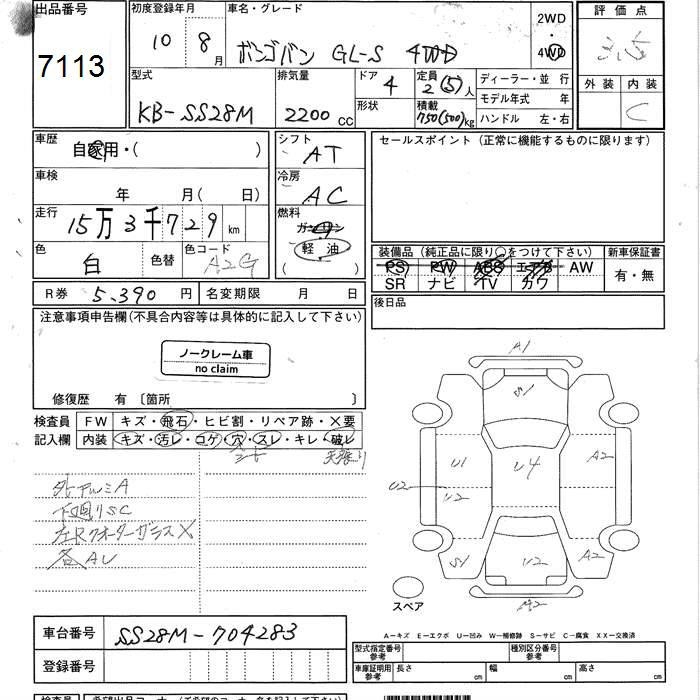 出品番号
7113
初度登録年月
10年 8月
車名・グレード
ボンゴバン GL-S 4WD
2WD
・
4WD
評価点
外装 内装
C
型式
KB-SS28M
排気量
2200 CC
ドア
4
形状
定員
2(5)人
積載
750(500)kg
ディーラー・並行
モデル年式 年
ハンドル 左・右
車歴
自家用・( )
シフト
AT
セールスポイント（正常に機能するものに限ります）
車検
年 月(日)
冷房
AC
走行
15万3千729 km
燃料
ガソリン
軽油
( )
色
白
色替
色コード
A2G
装備品（純正品に限り○をつけて下さい）
PS PW ABS エアB AW
SR ナビ TV カワ
新車保証書
有・無
R券 5,390 円 名変期限 月 日
後日品
注意事項申告欄(不具合内容等は具体的に記入して下さい)
ノークレーム車
no claim
修復歴 有〔箇所 〕
検査員
記入欄
FW キズ・飛石・ヒビ割・リペア跡・×要
内装 キズ・汚レ・コゲ・穴・スレ・キレ・破レ
シート 天張り
外アルミA
下廻りSC
左Rクオーターガラス X
各AU
A1
S1
U1
U4
A2
U2
U2
S1
U2
A2
A2
スペア
A-キズ E-エクボ U-凹み W-補修跡 S-サビ C-腐食 XX-交換済
車台番号 SS28M-704283
登録番号
型式指定番号
参考
種別区分番号
参考
車庫証明用
参考
長さ cm 幅 cm 高さ cm